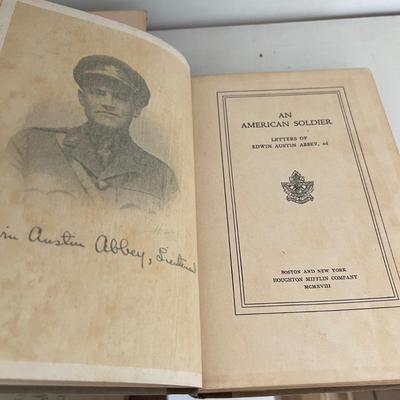 in Austin Abbey, Lieutenant
AN
AMERICAN SOLDIER
LETTERS OF
EDWIN AUSTIN ABBEY, 2d
BOSTON AND NEW YORK
HOUGHTON MIFFLIN COMPANY
MCMXVIII